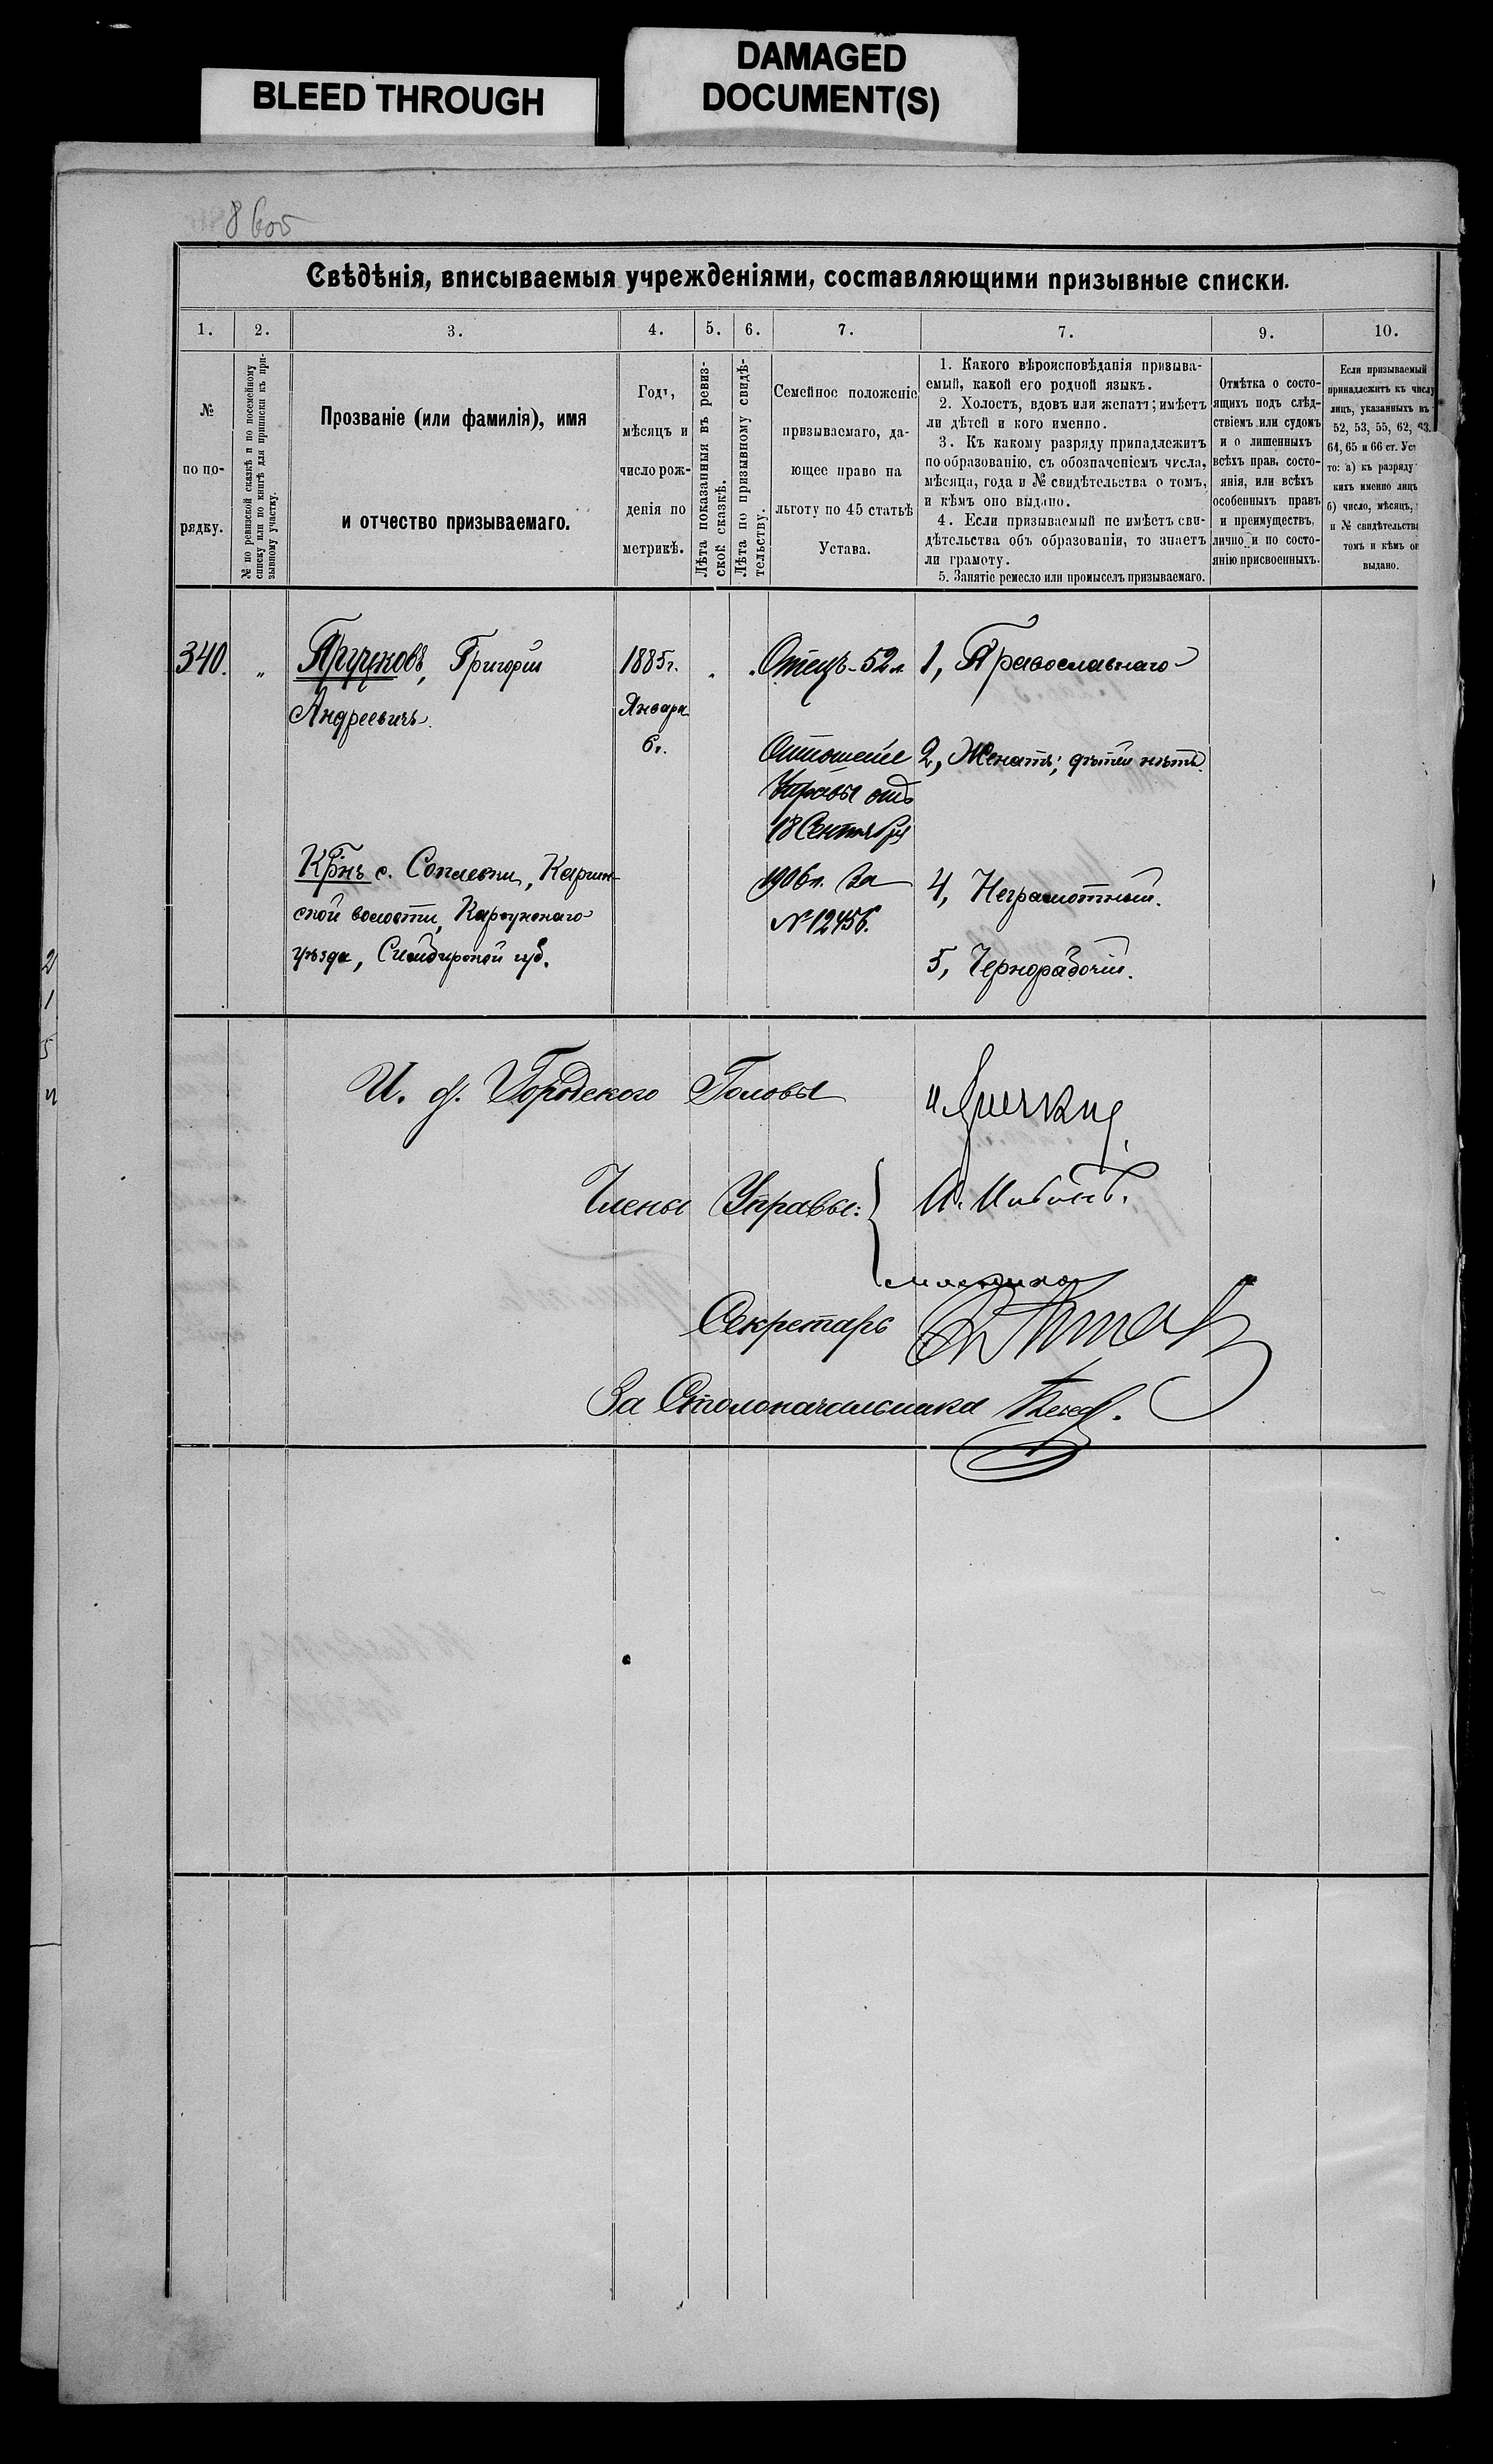 BLEED THROUGH
DAMAGED
DOCUMENT(S)
Свѣдѣнія, вписываемыя учрежденіями, составляющими призывные списки.
1. 2. 3. 4. 5. 6. 7. 7. 9. 10.
№
по по-
рядку.
№ по ревизской сказкѣ и по посемейному
списку или по книгѣ для приписки къ при-
зывному участку.
Прозваніе (или фамилія), имя
и отчество призываемаго.
Годъ,
мѣсяцъ и
число рож-
денія по
метрикѣ.
Лѣта показанныя въ ревиз-
ской сказкѣ.
Лѣта по призывному свидѣ-
тельству.
Семейное положеніе
призываемаго, да-
ющее право на
льготу по 45 статьѣ
Устава.
1. Какого вѣроисповѣданія призыва-
емый, какой его родной языкъ.
2. Холостъ, вдовъ или женатъ; имѣетъ
ли дѣтей и кого именно.
3. Къ какому разряду принадлежитъ
по образованію, съ обозначеніемъ числа,
мѣсяца, года и № свидѣтельства о томъ,
и кѣмъ оно выдано.
4. Если призываемый не имѣетъ сви-
дѣтельства объ образованіи, то знаетъ
ли грамоту.
5. Занятіе ремесло или промыселъ призываемаго.
Отмѣтка о состо-
ящихъ подъ слѣд-
ствіемъ или судомъ
и о лишенныхъ
всѣхъ прав. состо-
янія, или всѣхъ
особенныхъ правъ
и преимуществъ,
лично и по состо-
янію присвоенныхъ.
Если призываемый
принадлежитъ къ числу
лицъ, указанныхъ въ
52, 53, 55, 62, 63.
64, 65 и 66 ст. Уст
то: а) къ разряду
кихъ именно лицъ
б) число, мѣсяцъ,
и № свидѣтельства
томъ и кѣмъ он
выдано.
340. „ Григорій
Андреевичъ.
1885г.
Января
6г.
Отецъ-52л.
Отношеніе
Управы отъ
18 Сентября
1906г. за
№ 12456.
1, Православнаго
2, Женатъ; дѣтей нѣтъ.
4, Неграмотный.
5, Чернорабочій.
Кр-нъ с.
ской волости, Карсунскаго
уѣзда, Симбирской губ.
И. д. Городского Головы
Члены Управы:
Секретарь
За Столоначальника